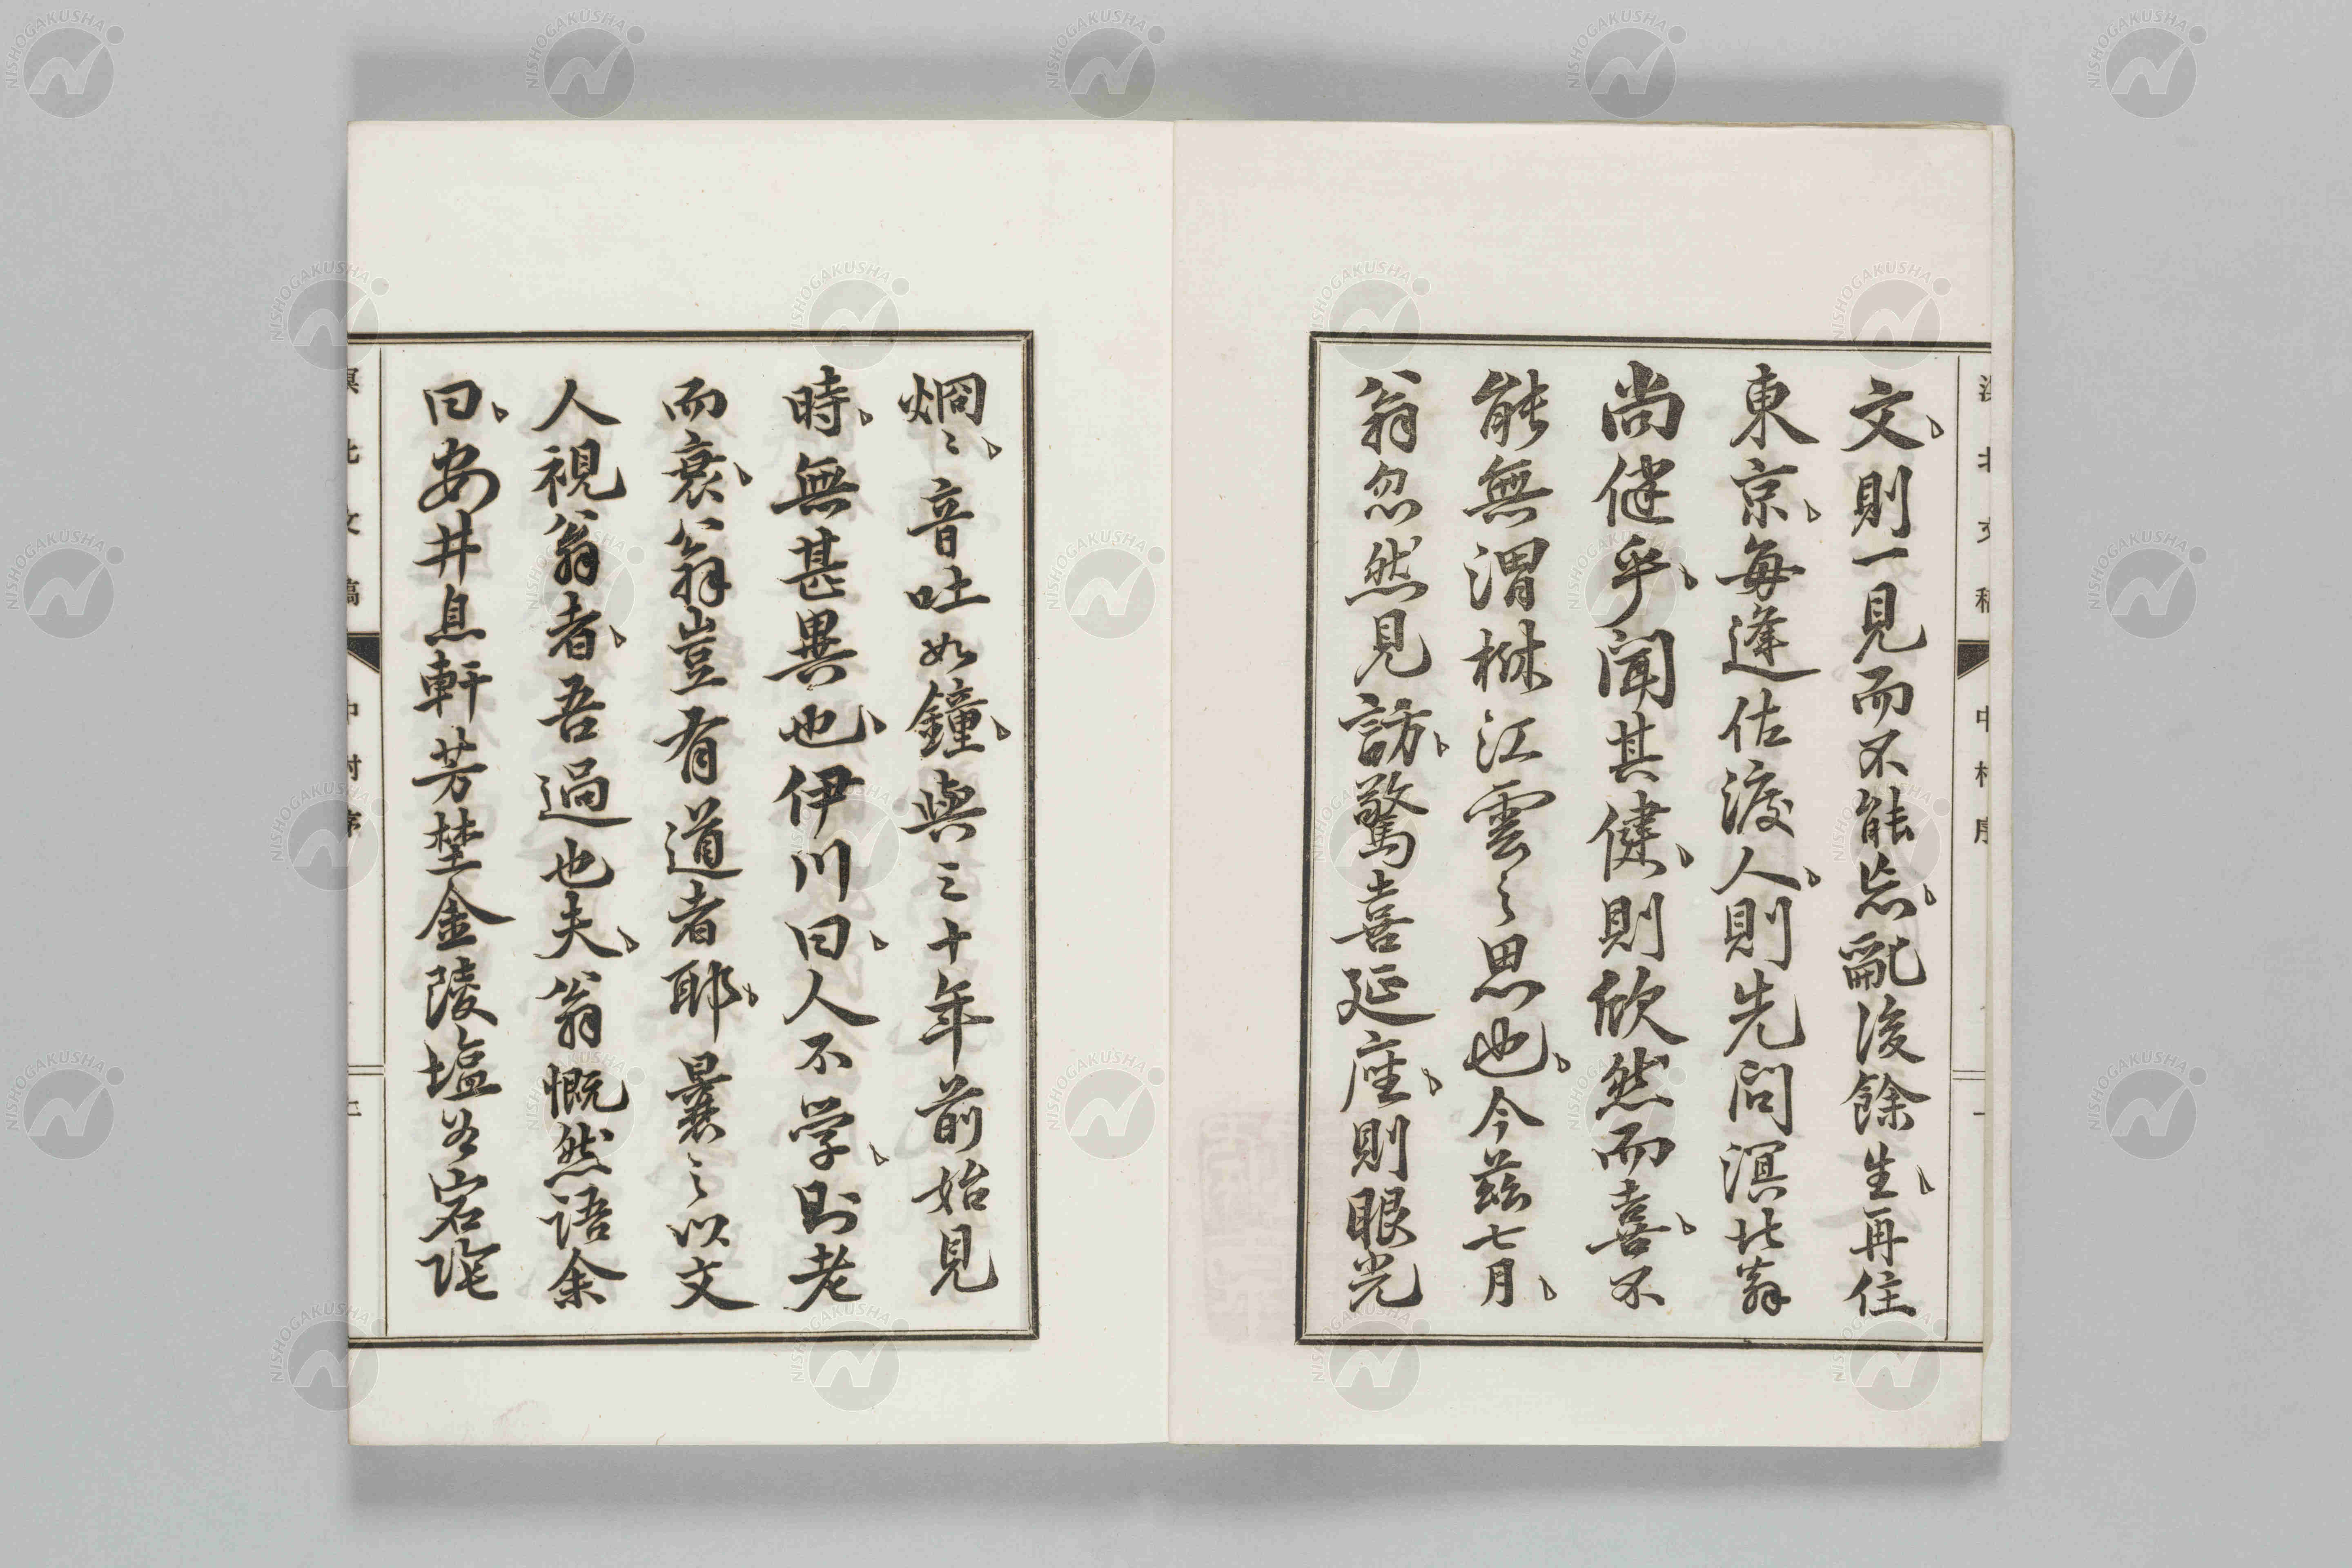 文、則一見而不能忘、亂後餘生、再住
東京、每逢估渡人、則先問溟北翁
尚健乎、聞其健、則欣然而喜、不
能無渭樹江雲之思也、今茲七月、
翁忽然見訪、驚喜延座、則眼光
炯〻、音吐如鐘、與三十年前始見
時、無甚異也、伊川曰、人不学、則老
而衰、翁豈有道者耶、曩之以文
人視翁者、吾過也夫、翁慨然語余
曰、安井息軒芳埜金陵塩谷宕陰
溟北文稿
中村序